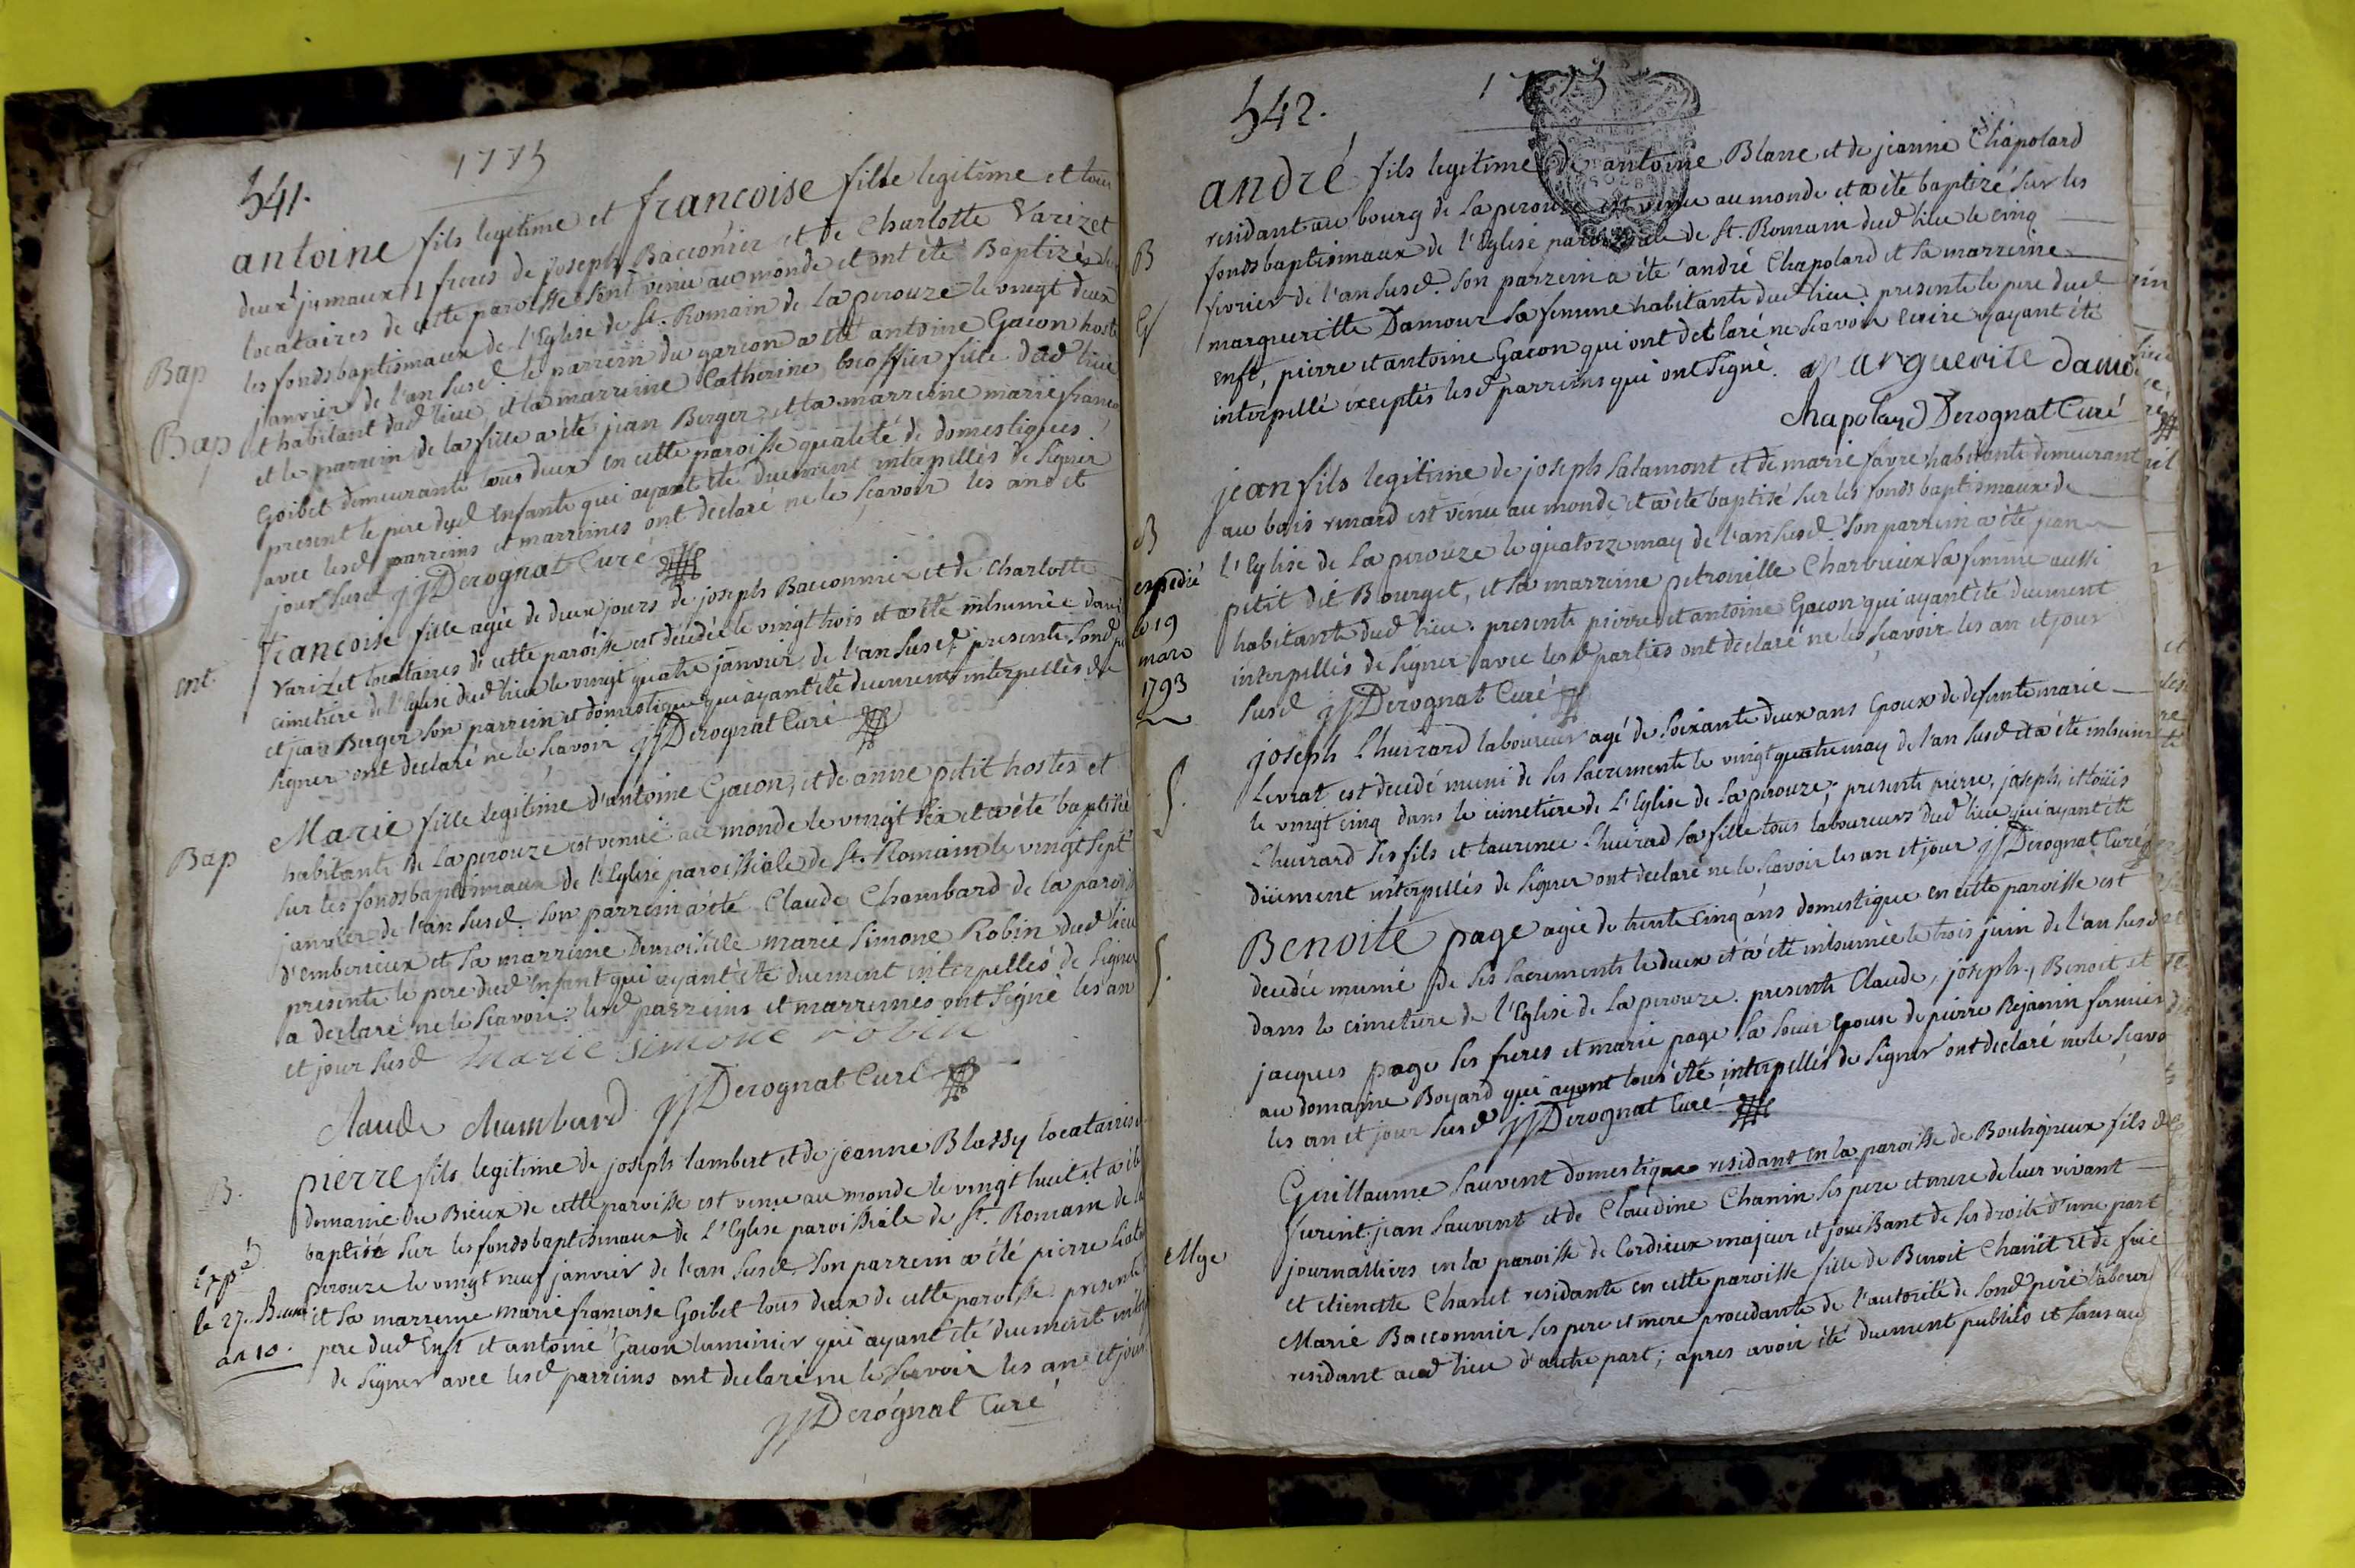 541.
1775
antoine fils legitime et francoise fille legitime et tous
deux jumaux et freres de joseph Bacconier et de Charlotte Varizet
locataires de cette paroisse sont venu au monde et ont été Baptizés sur
Bap
les fonds baptismaux de l'Eglise de St. Romain de la perouze le vingt deux
janvier de l'an susd. le parrein du garcon a été antoine Gacon hoste
Bap
et habitant dud lieu, et la marreine Catherine fille dud lieu
et le parrein de la fille a été jean Berger, et la marreine marie franco
Goibet demeurants tous deux en cette paroisse qualité de domestiques
present le pere dud Enfants qui ayant été duement interpellés de signer
avec lesd parreins et marreines ont déclaré ne le scavoir les an et
jour susd jjDerognat Curé
ent.
francoise fille agée de deux jours de joseph Bacconnier et de Charlotte
Varizet locataires de cette paroisse est décédée le vingt trois et a été inhumée dans
cimetiere de l'Eglise dud lieu le vingt quatre janvier de l'an susd. presents sond pe
et jean Berger son parrein et domestique qui ayant été duement interpellés de
signer ont declaré ne le scavoir jjDerognat Curé
Bap
Marie fille legitime d'antoine Gacon, et de anne petit hostes et
habitants de la perouze est venuë au monde le vingt six et a été baptisée
sur les fonds baptismaux de l'Eglise paroissiale de St. Romain le vingt sept
janvier de l'an susd. son parrein a été Claude Chambard de la paroiss
d'emberieux et sa marreine Demoiselle marie Simone Robin dud lieu
presents le pere dud Enfant qui ayant été duement interpellés de signer
a declaré ne le scavoir. lesd parreins et marreines ont signé les an
et jour susd marie simone robin
Claude Chambard jjDerognat Curé
B.
pierre fils legitime de joseph lambert et de jeanne Blassy locataires
domaine du Bieux de cette paroisse est venu au monde le vingt huit et a été
baptisé sur les fonds baptismaux de L'Eglise paroissiale de St. Romain de la
Expé
perouze le vingt neuf janvier de l'an susd. son parrein a été pierre
le 27. Brum
et sa marreine marie francoise Goibet tous deux de cette paroisse presents
an 10.
pere dud Enft et antoine Gacon luminier qui ayant été duement
de signer avec lesd parreins ont declaré ne le scavoir les an et jour
jjDerognat Curé
542.
1775
andré fils legitime de antoine Blanc et de jeanne Chapolard
residant au bourg de la perouze est venu au monde et a été baptizé sur les
B
fonds baptismaux de l'Eglise paroissiale de St. Romain dud lieu le cinq
fevrier de l'an susd. son parrein a été andré Chapolard et sa marreine
margueritte Damour sa femme habitants dud lieu. presents le pere dud
enft, pierre et antoine Gacon qui ont declaré ne scavoir ecrire ayant été
interpellé exceptés lesd parreins qui ont signé. Marguerite damo
Chapolard Derognat Curé
jean fils legitime de joseph Salamont et de marie favre habitants demeurant
au bois renard est vénu au monde et a été baptisé sur les fonds baptismaux de
B
L'Eglise de la perouze le quatorze may de l'an susd. son parrein a été jean
expedié
petit dit Bourget, et sa marreine petronille Charvieux sa femme aussi
le 19
habitants dud lieu. presents pierre et antoine Gacon qui ayant été duement
mars
interpellés de signer avec lesd parties ont declaré ne le scavoir les an et jour
1793
susd jjDerognat Curé
joseph Lhuirard laboureur agé de soixante deux ans Epoux de defunte marie
Levrat est decedé muni de ses sacrements le vingt quatre may de l'an susd et a été inhumé
S.
le vingt cinq dans le cimetiere de L'Eglise de la perouze; presents pierre, joseph, et loüis
Lhuirard ses fils et laurence Lhuirad sa fille tous laboureurs dud lieu qui ayant été
düement interpellés de signer ont declaré ne le scavoir les an et jour jjDerognat Curé
Benoite page agée de trente cinq ans domestique en cette paroisse est
S.
decedée munie de ses sacrements le deux et a été inhumée le trois juin de l'an susd
dans le cimetiere de l'Eglise de la perouze. presents Claude, joseph, Benoit et
jacques page ses freres et marie page sa soeur epouse de pierre Rejanin fermier
au domaine Boyard qui ayant tous été interpellés de signer ont declaré ne le scavo
les an et jour susd jjDerognat Curé
Guillaume Sauvent domestique residant en la paroisse de Bouligneux fils de
furent jean Sauvent et de Claudine Chanin ses pere et mere de leur vivant
Mge
journalliers en la paroisse de Cordieux majeur et jouissant de ses droits d'une part
et etienette Chanet residante en cette paroisse fille de Benoit Chanêt et de fuë
Marie Bacconnier ses pere et mere procedante de l'autorité de sond pere labour
residant aud lieu d'autre part; apres avoir été duement publiés et sans au